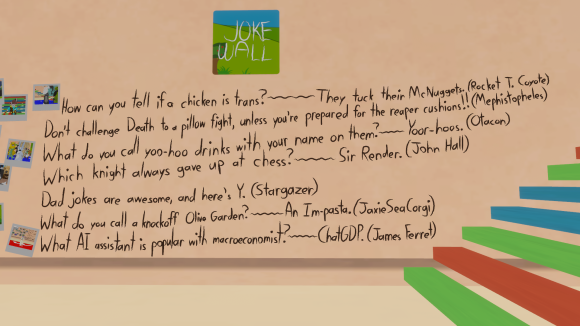 JOKE
WALL
How can you tell if a chicken is trans?~~~~~~ They tuck their McNuggets. (Rocket T. Coyote)
Don't challenge Death to a pillow fight, unless you're prepared for the reaper cushions!! (Mephistopheles)
What do you call yoo-hoo drinks with your name on them?~~~ Yoor-hoos. (Otacon)
Which knight always gave up at chess?~~~~~ Sir Render. (John Hall)
Dad jokes are awesome, and here's Y. (Stargazer)
What do you call a knockoff Olive Garden?~~~~~An Im-pasta. (JaxieSeaCorgi)
What AI assistant is popular with macroeconomist?~~~~~ChatGDP. (James Ferret)